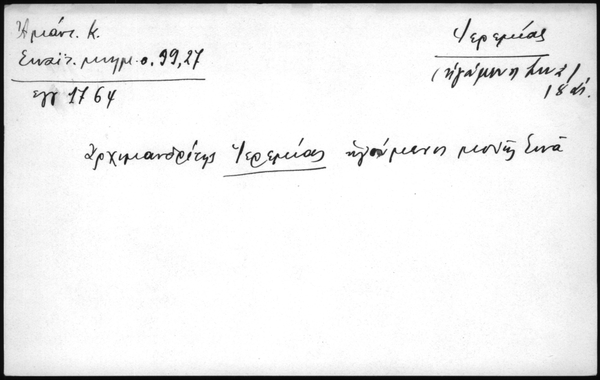 Ἀμάντ. Κ.
Σιναϊτ. μνημ. σ. 99,27
ἐγγ 1764
Ἱερεμίας
(ἡγούμενος Σινᾶ)
18 αἰ.
Ἀρχιμανδρίτης Ἱερεμίας ἡγούμενος μονῆς Σινᾶ